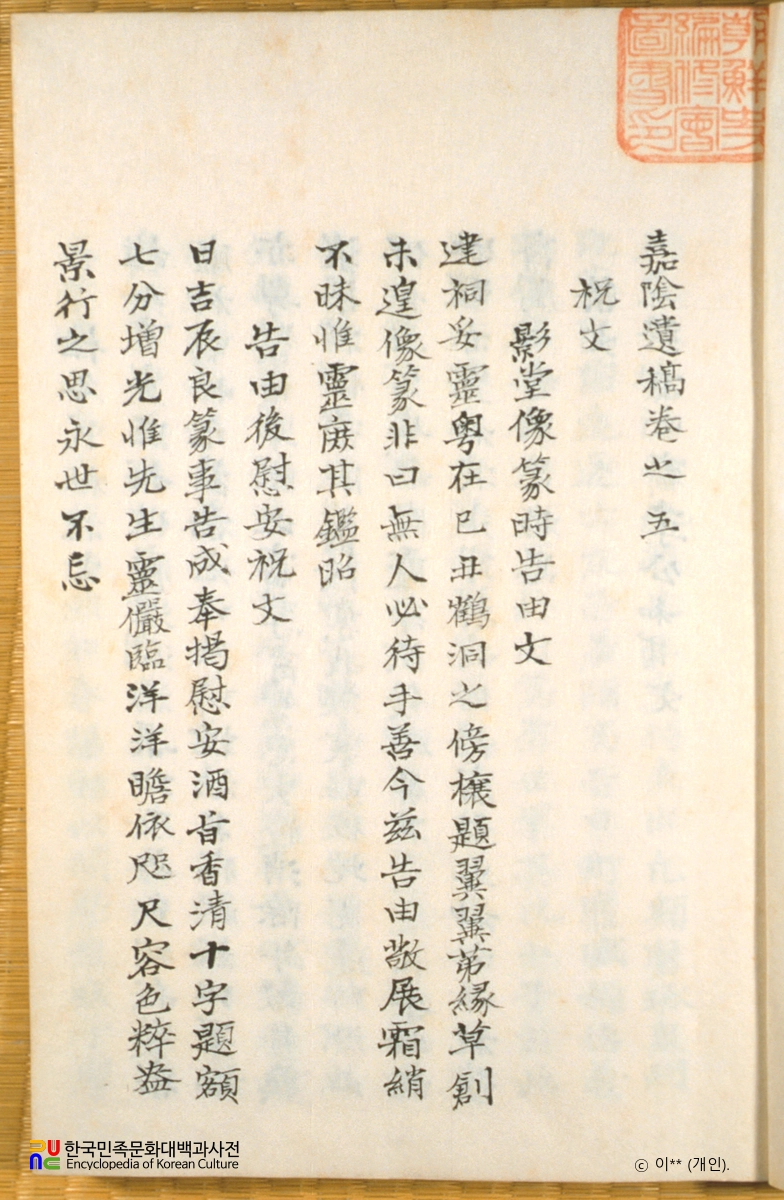 嘉陰遺稿卷之五
祝文
影堂像篆時告由文
建祠妥靈粤在己丑鶴洞之傍榱題翼翼苐緣草創
未遑像篆非曰無人必待手善今玆告由敬展霜綃
不昧惟靈庶其鑑昭
告由後慰安祝文
日吉辰良篆事告成奉揭慰安酒旨香清十字題額
七分增光惟先生靈儼臨洋洋瞻依咫尺容色粹盎
景行之思永世不忘
朝鮮史編修會圖書印
한국민족문화대백과사전
Encyclopedia of Korean Culture
ⓒ 이** (개인).